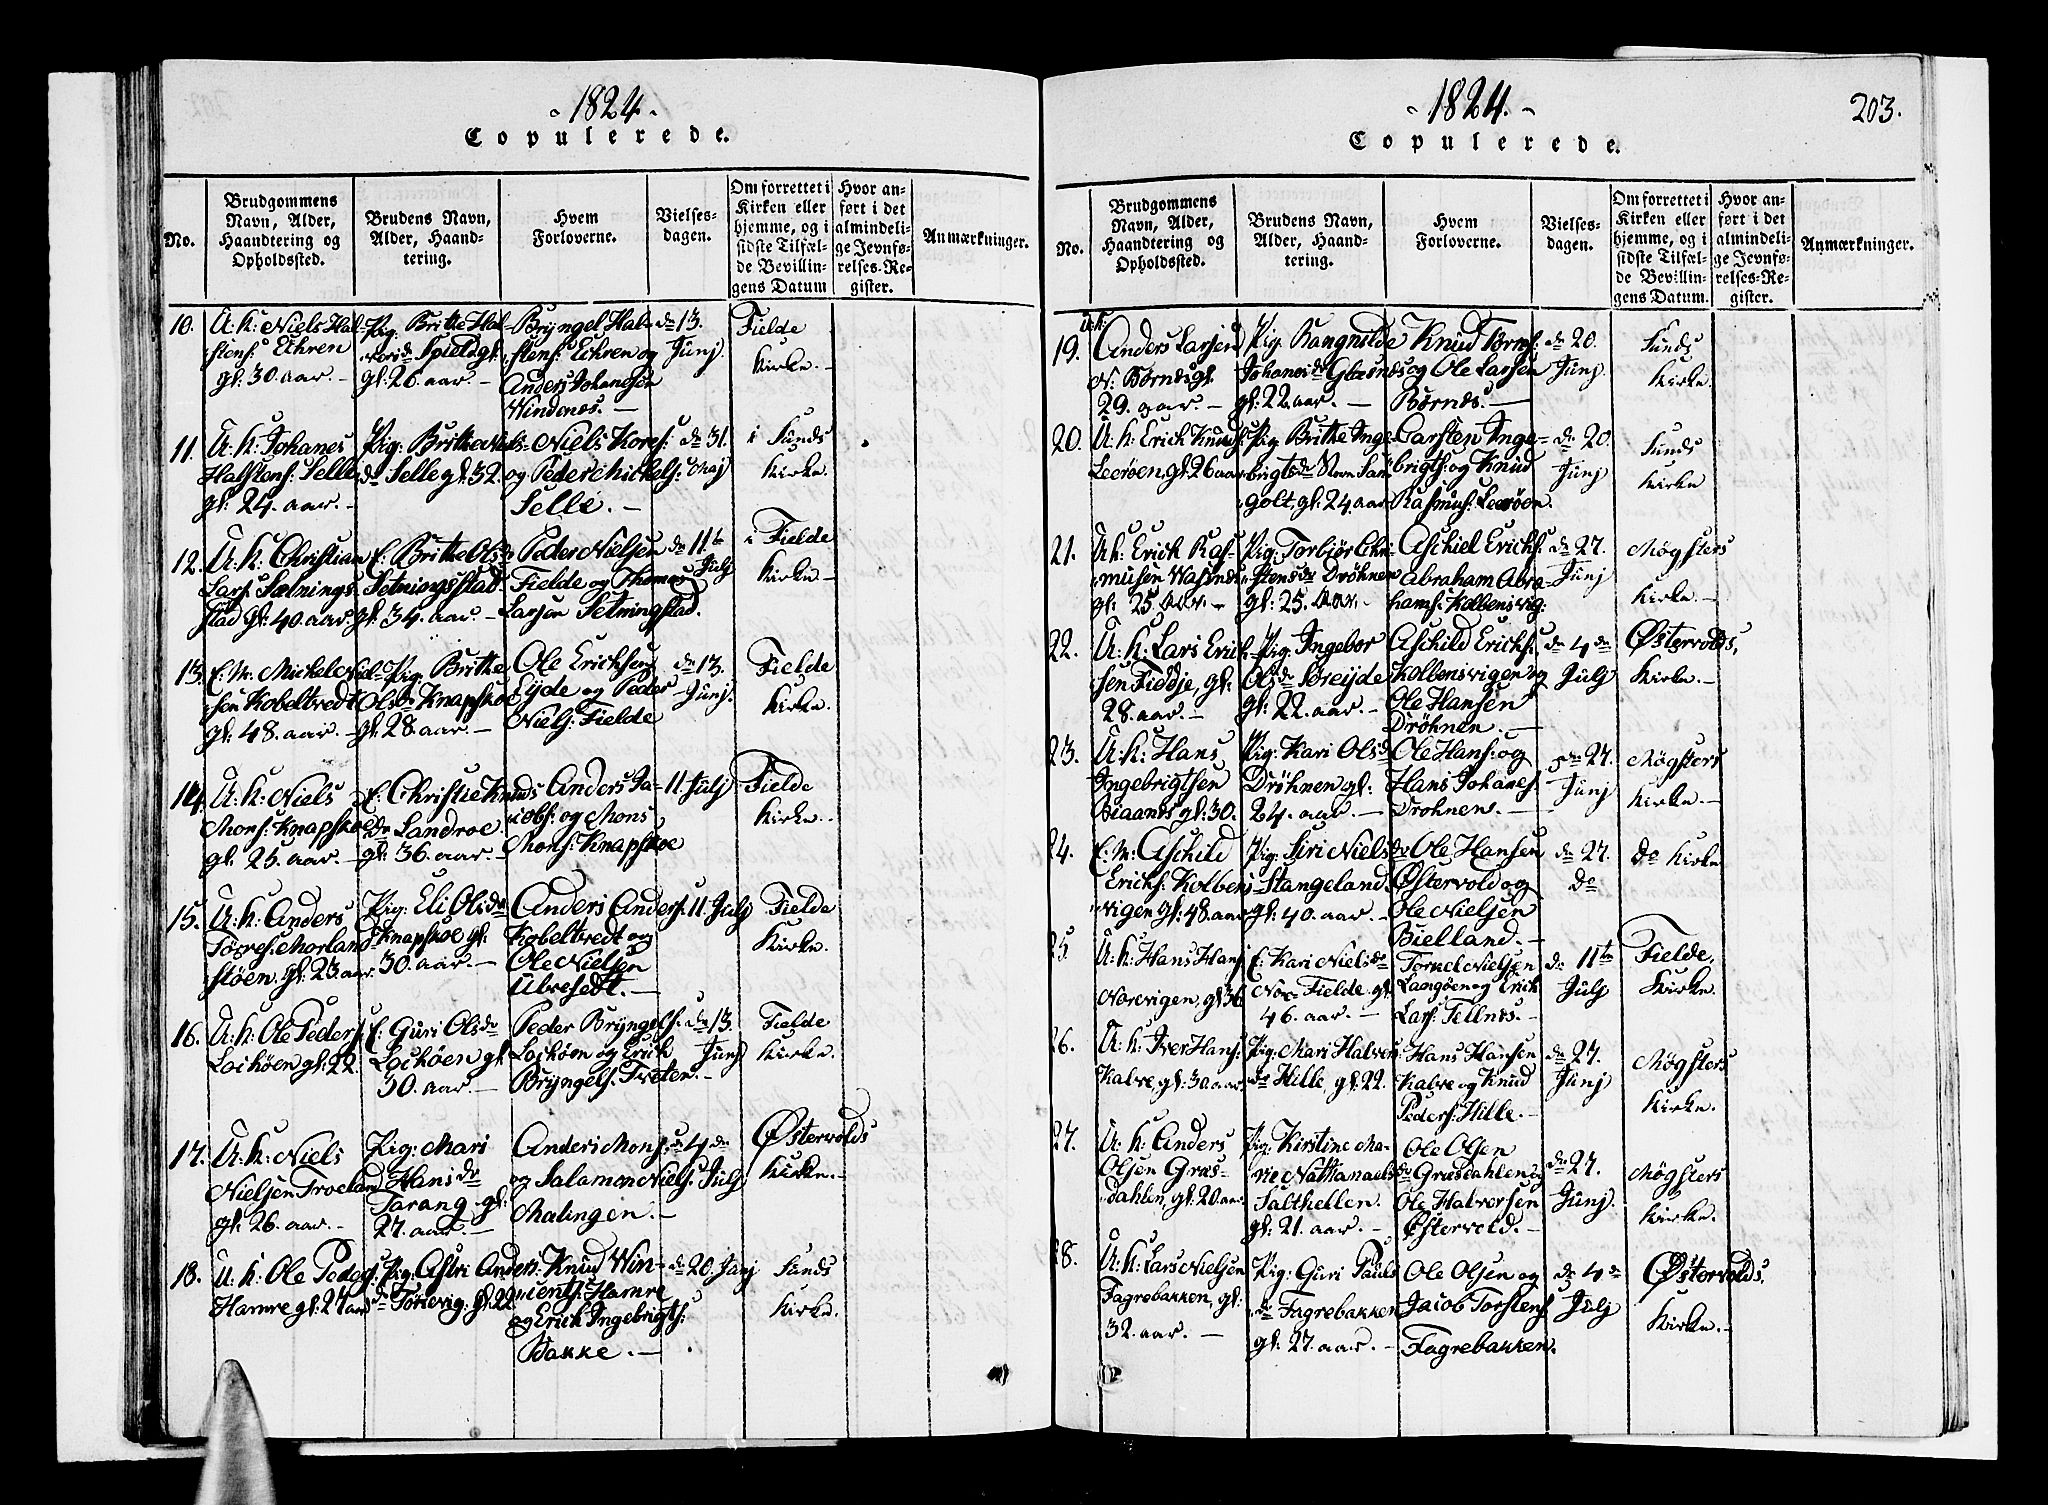 1824.
Copulerede.
No.
Brudgommens
Navn, Alder,
Haandtering og
Opholdssted.
Brudens Navn,
Alder, Haand-
tering.
Hvem
Forloverne.
Vielses-
dagen.
Om forrettet i
Kirken eller
hjemme, og i
sidste Tilfæl-
de Bevillin-
gens Datum
Hvor an-
ført i det
almindeli-
ge Jevnfø-
relses-Re-
gister.
Anmærkninger.
10.
U: K: Niels Hal-
stens: Echren
gl: 30. aar. -
Pig: Brithe Hal-
vorsdr Spield gl:
gl: 26. aar. -
Bryngel Hal-
stens: Echren og
Anders Johanesen
Windenes. -
dn 13.
Junj
Fielde
Kirke. -
11.
U: K: Johanes
Halstens: Selle
gl: 24. aar. -
Pig: Brithe Niels-
dr Selle gl: 32.
Niels Kors:
og Peder Mickels:
Selle. -
dn 31.
Maj
i Sunds
Kirke.
12.
U: K: Christian
Lars: Sætnings-
stad gl: 40. aar.
E: Brithe Olsdr
Setningsstad
gl: 34. aar. -
Peder Nielsen
Fielde og Thomas
Larsen Setningstad.
dn 11te
Julj
i Fielde
Kirke -
13.
E: M: Mickel Niel-
sen Kobeltvedt
gl: 48. aar. -
Pig: Brithe
Olsdr Knapskoe
gl: 28. aar. -
Ole Ericksen
Eyde og Peder
Niels: Fielde
dn 13.
Junj.
Fielde
Kirke.
14.
U: K: Niels
Mons: Knapskoe
gl: 25. aar -
E: Christie Knuds
dr Landroe
gl: 36. aar. -
Anders Ja-
cobs: og Mons
Mons: Knapskoe
11 Julj
Fielde
Kirke. -
15.
U: K: Anders
Torres: Morland-
støen. gl: 23 aar.
Pig: Eli Olsdr
Knapskoe gl:
30. aar. -
Anders Anders:
Kobeltvedt og
Ole Nielsen
Ubresedt. -
11 Julj
Fielde
Kirke.
16.
U: K: Ole Peders:
Lockøen gl: 22.
E: Guri Olsdr
Lockøen gl:
30. aar. -
Peder Bryngels:
Lockøen og Erick
Bryngels: Træten. -
dn 13.
Junj
Fielde
Kirke.
17.
U: K: Niels
Nielsen Troeland
gl: 26. aar. -
Pig: Mari
Hansdr
Tarang. gl:
27. aar. -
Anders Mons:
og Salamon Niels:
Malingen. -
dn 4de
Julj.
Østervolds
Kirke. -
18.
U: K: Ole Peders:
Hamre gl: 27 aar
Pig: Astri Anders:
dr Torsevig. gl: 22.
Knud Win-
cents: Hamre
og Erick Ingebrigts:
Bakke. -
dn 20. Junj
Sunds
Kirke.
1824.
203.
Copulerede.
No.
Brudgommens
Navn, Alder,
Haandtering og
Opholdssted.
Brudens Navn,
Alder, Haand-
tering.
Hvem
Forloverne.
Vielses-
dagen.
Om forrettet i
Kirken eller
hjemme, og i
sidste Tilfæl-
de Bevillin-
gens Datum.
Hvor an-
ført i det
almindeli-
ge Jevnfø-
relses-Re-
gister.
Anmærkninger.
19.
U: K:
Anders Larsen
N: Børnæs gl:
29. aar. -
Pig: Rangnilde
Johanisdr Glesnæs
gl: 22. aar. -
Knud Børns:
og Ole Larsen
Børnes. -
dn 20.
Junj.
Sunds
Kirke.
20.
U: K: Erick Knuds:
Leerøen, gl: 26 aar
Pig: Brithe Inge-
brigtsdr
golt, gl: 24. aar
Carsten Inge-
brigts: og Knud
Rasmus: Leerøen.
dn 20.
Junj
Sunds
Kirke
21.
U: K: Erick Ras-
musen Wasnæs
gl: 25 aar. -
Pig: Torbjør Chri-
stensdr Drøhnen
gl: 25. aar. -
Aschiel Ericks:
Abraham Abra-
hams: Kolbensvig:
dn 27.
Junj
Møgsters
Kirke. -
22.
U: K: Lars Erick-
sen Fiddje, gl:
28. aar. -
Pig: Ingebor
Olsdr Søreyde
gl: 22. aar. -
Aschild Ericks:
Kolbensvigen og
Ole Hansen
Drøhnen. -
dn 4de
Julj
Østervolds,
Kirke. -
23.
U: K: Hans
Ingebrigtsen
Biaanes gl: 30.
Pig: Kari Olsdr
Drøhnen gl:
24. aar. -
Ole Hans: og
Hans Johanes:
Drohnen. -
dn 27.
Junj
Møgsters
Kirke. -
24.
E: M: Aschild
Ericks: Kolbens-
vigen gl: 48. aar
Pig: Siri Nielsdr
Stangeland.
gl: 40. aar. -
Ole Hansen
Østervold og
Ole Nielsen
Bielland. -
dn 27.
do
do Kirke
25.
U: K: Hans Hans:
Norevigen, gl: 36
E: Kari Nielsdr
Nor- Fielde, gl:
46. aar. -
Torkel Nielsen
Langøen og Erick
Lars: Tellnes. -
dn 11te
Julj
Fielde,
Kirke.
26.
U: K: Iver Hans:
Kalve, gl: 30 aar.
Pig: Mari Halvers:
dr Hille, gl: 22.
Hans Hansen
Kalve og Knud
Peders: Hille. -
dn 27.
Junj
Møgsters
Kirke.
27.
U: K: Anders
Olsen Græs-
dahlen, gl: 20 aar
Pig: Kirstine Ma-
rie Nathanaelsdr
Salthellen.
gl: 21. aar. -
Ole Olsen
Græsdahlen og
Ole Halversen
Østervold. -
dn 27.
Junj.
Møgsters
Kirke.
28.
U: K: Lars Nielsen
Fagrebakken, gl:
32. aar. -
Pig: Guri Pauls
dr Fagrebakken
gl: 27. aar. -
Ole Olsen og
Jacob Torstens:
Fagrebakken.
dn 4de
Julj
Østervolds.
Kirke. -